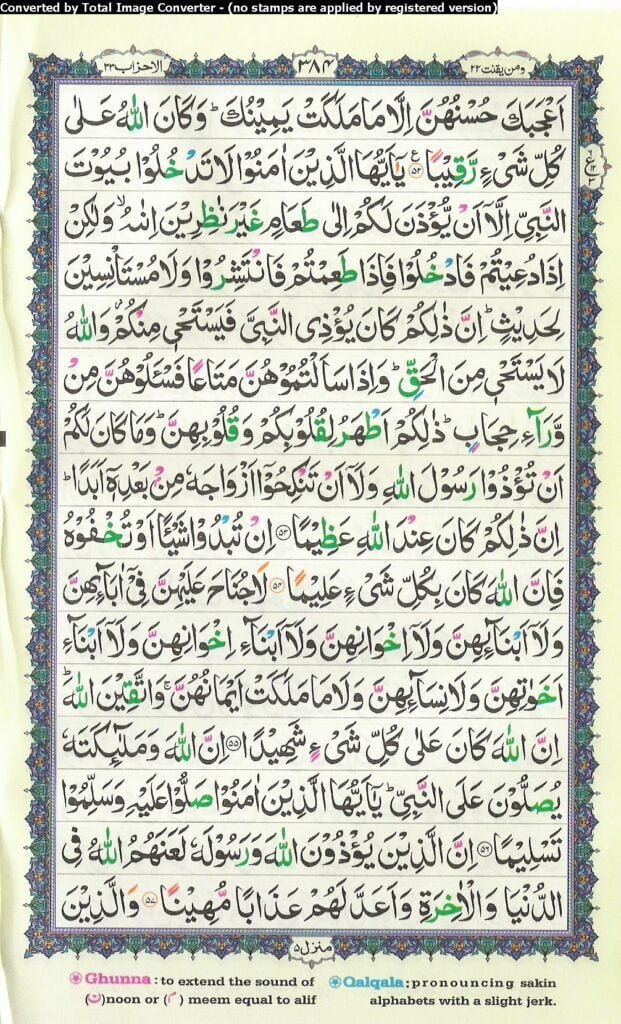 Converted by Total Image Converter - (no stamps are applied by registered version)
ومن يقنت ٢٢
٣٨٤
الاحزاب ٣٣
اَعْجَبَكَ حُسْنُهُنَّ اِلَّا مَا مَلَكَتْ يَمِيْنُكَ ؕ وَكَانَ اللّٰهُ عَلٰى
كُلِّ شَىْءٍ رَّقِيْبًا ﴿۵۲﴾ يٰۤاَيُّهَا الَّذِيْنَ اٰمَنُوْا لَا تَدْخُلُوْا بُيُوْتَ
النَّبِىِّ اِلَّاۤ اَنْ يُّؤْذَنَ لَكُمْ اِلٰى طَعَامٍ غَيْرَ نٰظِرِيْنَ اِنٰىهُ ۙ وَلٰكِنْ
اِذَا دُعِيْتُمْ فَادْخُلُوْا فَاِذَا طَعِمْتُمْ فَانْتَشِرُوْا وَلَا مُسْتَاْنِسِيْنَ
لِحَدِيْثٍ ؕ اِنَّ ذٰلِكُمْ كَانَ يُؤْذِى النَّبِىَّ فَيَسْتَحْىٖ مِنْكُمْ ؗ وَاللّٰهُ
لَا يَسْتَحْىٖ مِنَ الْحَقِّ ؕ وَاِذَا سَاَلْتُمُوْهُنَّ مَتَاعًا فَسْئَلُوْهُنَّ مِنْ
وَّرَآءِ حِجَابٍ ؕ ذٰلِكُمْ اَطْهَرُ لِقُلُوْبِكُمْ وَقُلُوْبِهِنَّ ؕ وَمَا كَانَ لَكُمْ
اَنْ تُؤْذُوْا رَسُوْلَ اللّٰهِ وَلَاۤ اَنْ تَنْكِحُوْۤا اَزْوَاجَهٗ مِنْۢ بَعْدِهٖۤ اَبَدًا ؕ
اِنَّ ذٰلِكُمْ كَانَ عِنْدَ اللّٰهِ عَظِيْمًا ﴿۵۳﴾ اِنْ تُبْدُوْا شَيْئًا اَوْ تُخْفُوْهُ
فَاِنَّ اللّٰهَ كَانَ بِكُلِّ شَىْءٍ عَلِيْمًا ﴿۵۴﴾ لَا جُنَاحَ عَلَيْهِنَّ فِىْۤ اٰبَآئِهِنَّ
وَلَاۤ اَبْنَآئِهِنَّ وَلَاۤ اِخْوَانِهِنَّ وَلَاۤ اَبْنَآءِ اِخْوَانِهِنَّ وَلَاۤ اَبْنَآءِ
اَخَوٰتِهِنَّ وَلَا نِسَآئِهِنَّ وَلَا مَا مَلَكَتْ اَيْمَانُهُنَّ ۚ وَاتَّقِيْنَ اللّٰهَ ؕ
اِنَّ اللّٰهَ كَانَ عَلٰى كُلِّ شَىْءٍ شَهِيْدًا ﴿۵۵﴾ اِنَّ اللّٰهَ وَمَلٰٓئِكَتَهٗ
يُصَلُّوْنَ عَلَى النَّبِىِّ ؕ يٰۤاَيُّهَا الَّذِيْنَ اٰمَنُوْا صَلُّوْا عَلَيْهِ وَسَلِّمُوْا
تَسْلِيْمًا ﴿۵۶﴾ اِنَّ الَّذِيْنَ يُؤْذُوْنَ اللّٰهَ وَرَسُوْلَهٗ لَعَنَهُمُ اللّٰهُ فِى
الدُّنْيَا وَالْاٰخِرَةِ وَاَعَدَّ لَهُمْ عَذَابًا مُّهِيْنًا ﴿۵۷﴾ وَالَّذِيْنَ
منزل ۵
Ghunna : to extend the sound of (ن) noon or (م) meem equal to alif
Qalqala : pronouncing sakin alphabets with a slight jerk.